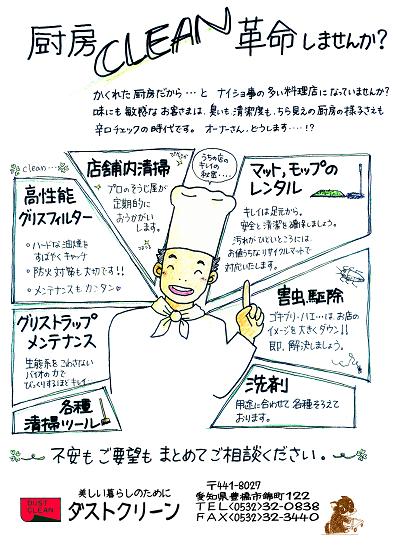 厨房CLEAN革命しませんか?
かくれた厨房だから…と ナイショ事の多い料理店になっていませんか?
味にも敏感なお客さまは、臭いも、清潔度も、ちら見えの厨房の様子さえも
辛口チェックの時代です。 オーナーさん、どうします‥‥!?
clean…
高性能
グリスフィルター
。ハードな油煙を
すばやくキャッチ
。防火対策も大切です!!
。メンテナンスもカンタン
店舗内清掃
プロのそうじ屋が
定期的に
おうかがい
します。
うちの店の
キレイの
秘密‥‥
マット,モップの
レンタル
キレイは足元から。
安全と清潔を確保しましょう。
汚れがひどいところには、
お値うちなリサイクルマットで
対応いたします。
グリストラップ
メンテナンス
生態系をこわさない
バイオの力で
びっくりするほどキレイ
害虫駆除
ゴキブリ・ハエ…は、お店の
イメージを大きくダウン!!
即、解決しましょう。
各種
清掃ツール
洗剤
用途に合わせて各種そろえて
おります。
不安もご要望もまとめてご相談ください。
DUST
CLEAN
美しい暮らしのために
ダストクリーン
〒441-8027
愛知県豊橋市錦町122
TEL(0532)32-0838
FAX(0532)32-3440